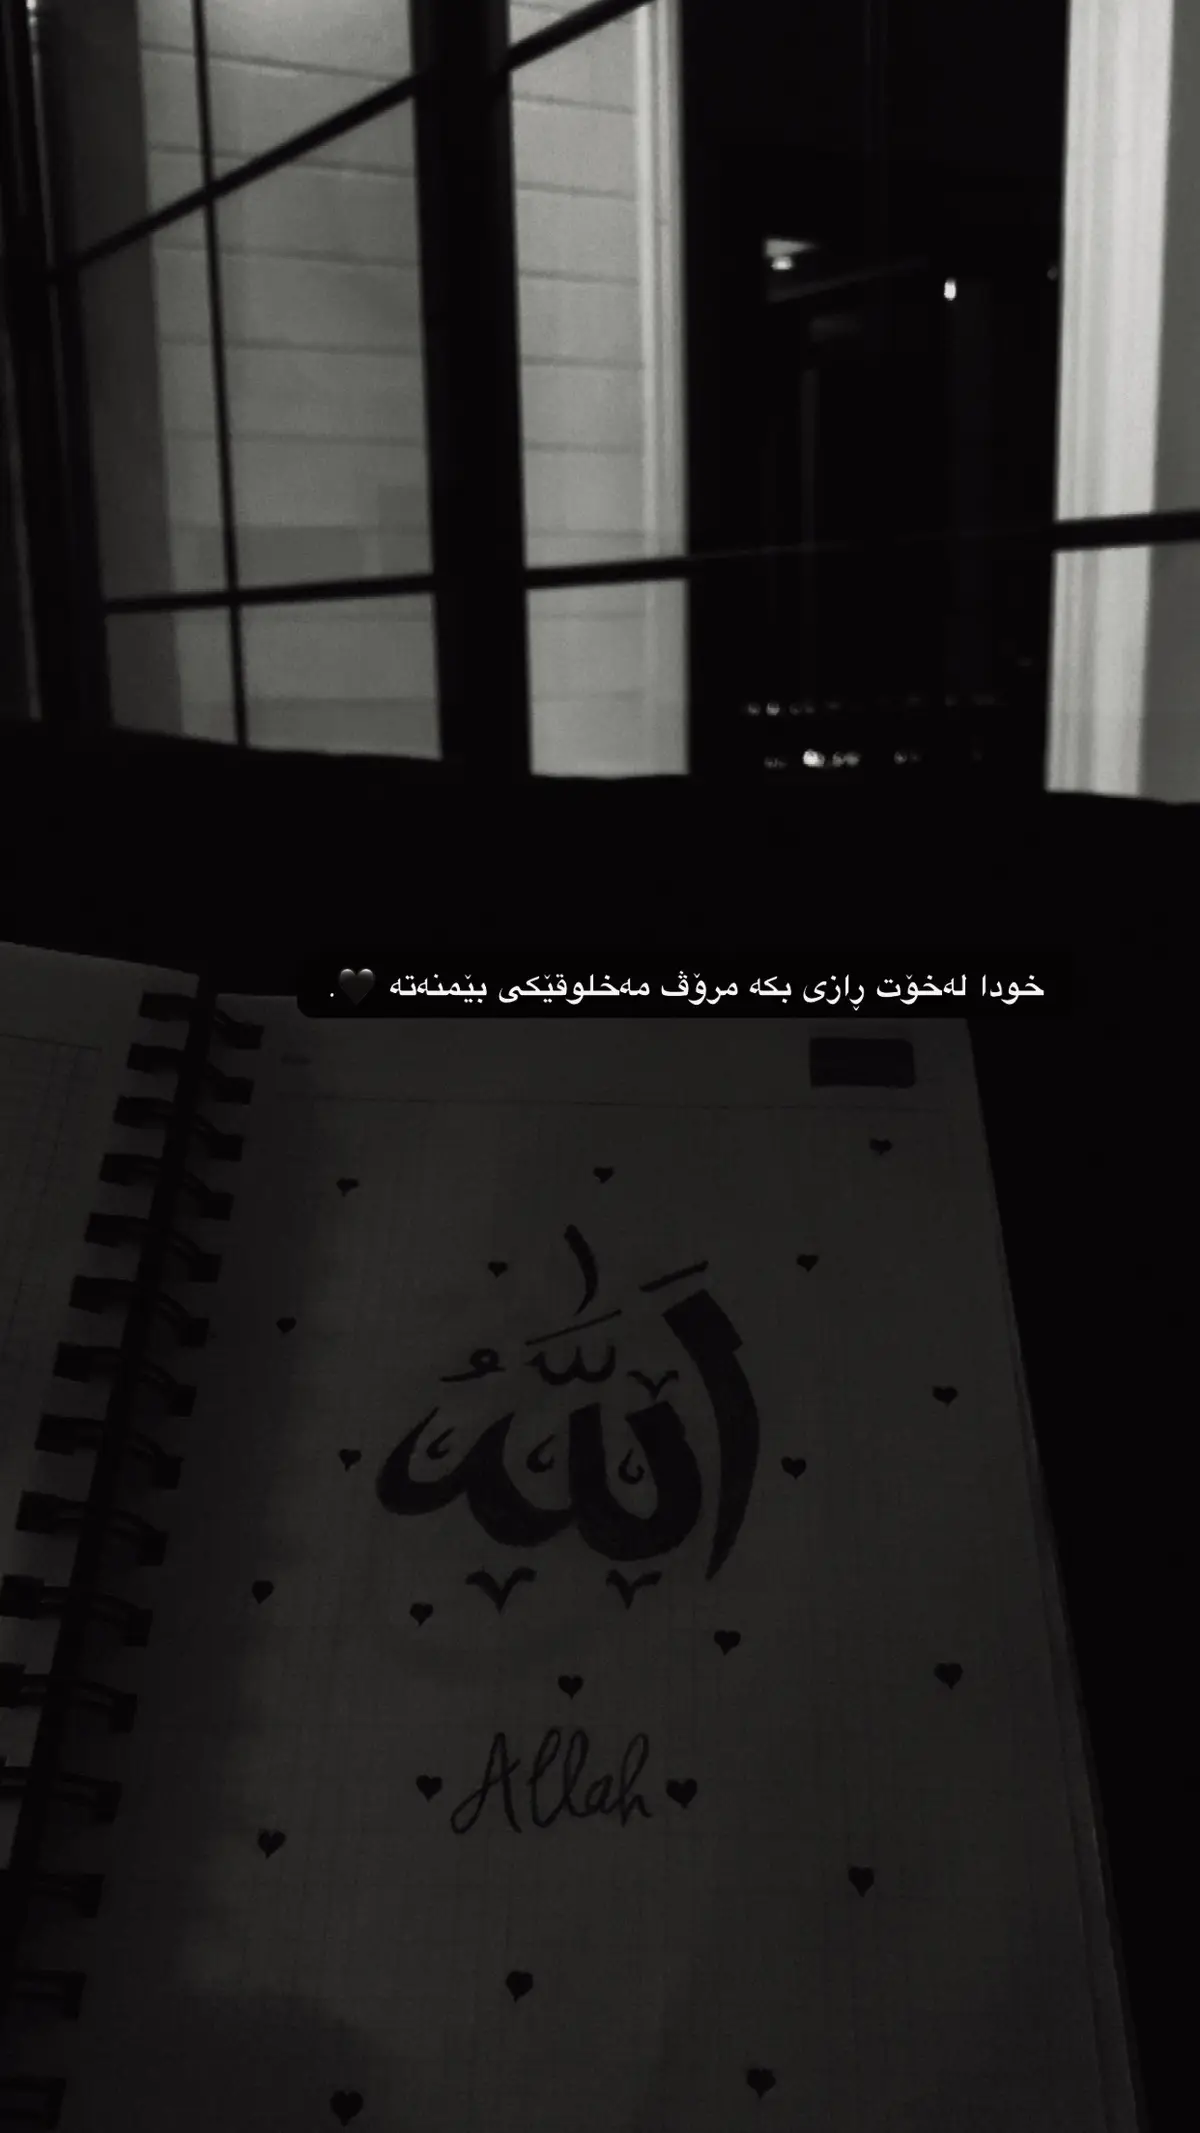 خودا لەخۆت ڕازی بکە مرۆڤ مەخلوقێکی بێمنەتە 🖤.
الله
Allah